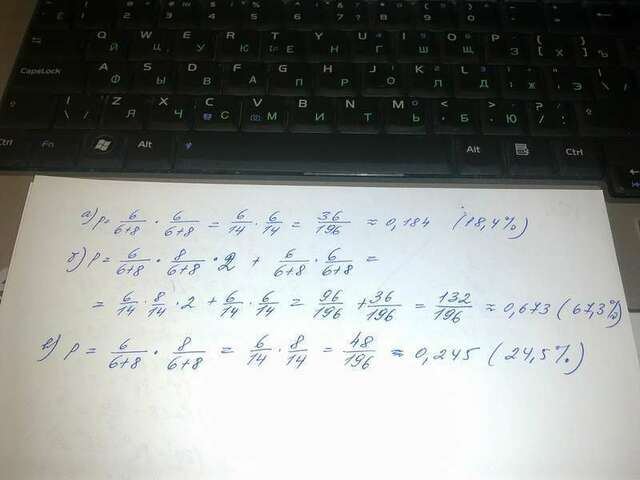 Q W E R T Y U I O P { }
Й Ц У К Е Н Г Ш Щ З [ Х ] Ъ
CapsLock A S D F G H J K L : "
Ф Ы В А П Р О Л Д Ж Э \
| \ Z X C V B N M < > ? /
Я Ч С М И Т Ь Б Ю
Ctrl Fn Alt Alt Ctrl
а) p = 6/(6+8) · 6/(6+8) = 6/14 · 6/14 = 36/196 ≈ 0,184 (18,4%)
б) p = 6/(6+8) · 8/(6+8) · 2 + 6/(6+8) · 6/(6+8) =
= 6/14 · 8/14 · 2 + 6/14 · 6/14 = 96/196 + 36/196 = 132/196 ≈ 0,673 (67,3%)
в) p = 6/(6+8) · 8/(6+8) = 6/14 · 8/14 = 48/196 ≈ 0,245 (24,5%)